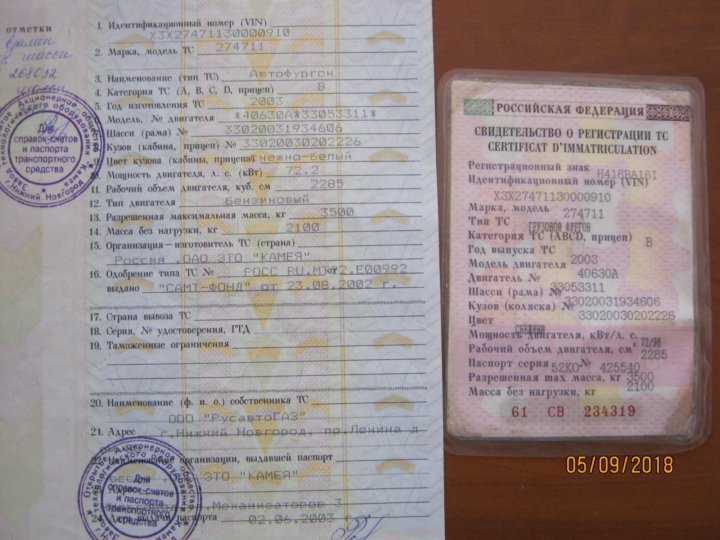 отметки
1. Идентификационный номер (VIN) X3X27471130000910
2. Марка, модель ТС 274711
3. Наименование (тип ТС) Автофургон
4. Категория ТС (A, B, C, D, прицеп) B
5. Год изготовления ТС 2003
Модель, № двигателя *40630A*33053311*
Шасси (рама) № 33020031934606
Кузов (кабина, прицеп) № 33020030202226
Цвет кузова (кабины, прицепа) снежно-белый
Мощность двигателя, л. с. (кВт) 72.2
11. Рабочий объем двигателя, куб. см 2285
12. Тип двигателя Бензиновый
13. Разрешенная максимальная масса, кг 3500
14. Масса без нагрузки, кг 2100
15. Организация – изготовитель ТС (страна)
Россия ,ОАО ЗТО "КАМЕЯ"
16. Одобрение типа ТС № РОСС RU.
выдано "САМТ-ФОНД" от 23.08.2002 г.
17. Страна вывоза ТС
18. Серия, № удостоверения, ГТД
19. Таможенные ограничения
20. Наименование (ф. и. о.) собственника ТС
ООО "РусавтоГАЗ"
21. Адрес г.Нижний Новгород, пр.Ленина д
организации, выдавшей паспорт
ЗТО "КАМЕЯ"
Механизаторов 3
24. Дата выдачи паспорта 02.06.2003 г
Для
справок-счетов
и паспорта
транспортного
средства
Для
справок-счетов
и паспорта
транспортного
средства
РОССИЙСКАЯ ФЕДЕРАЦИЯ
СВИДЕТЕЛЬСТВО О РЕГИСТРАЦИИ ТС
CERTIFICAT D'IMMATRICULATION
Регистрационный знак Н416ВА161
Идентификационный номер (VIN)
X3X27471130000910
Марка, модель 274711
Тип ТС ГРУЗОВОЙ ФУРГОН
Категория ТС (ABCD, прицеп) B
Год выпуска ТС 2003
Модель двигателя 40630А
Двигатель № 33053311
Шасси (рама) № 33020031934606
Кузов (коляска) № 33020030202226
Цвет
Мощность двигателя, кВт/л. с. 72/98
Рабочий объем двигателя, см³ 2285
Паспорт серия 52КО № 425540
Разрешенная max масса, кг 3500
Масса без нагрузки, кг 2100
61 СВ 234319
05/09/2018